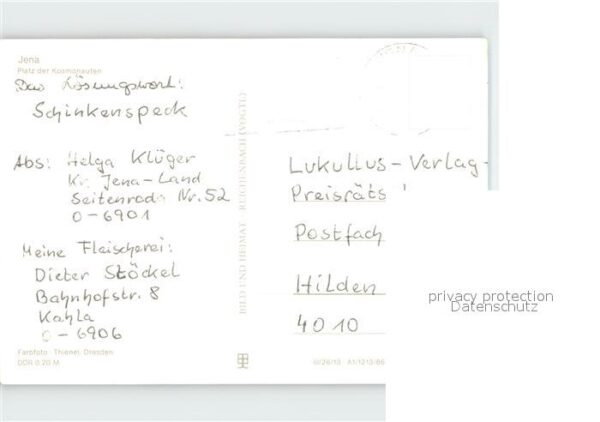 Jena
Platz der Kosmonauten
Das Lösungswort:
Schinkenspeck
Abs: Helga Klüger
Kr. Jena-Land
Seitenroda Nr. 52
O-6901
Meine Fleischerei:
Dieter Stöckel
Bahnhofstr. 8
Kahla
O-6906
Farbfoto: Thienel, Dresden
DDR 0,20 M
BILD UND HEIMAT REICHENBACH (VOGTL)
Lukullus-Verlag-
Preisräts
Postfach
Hilden
4010
A1/1213/86
privacy protection
Datenschutz